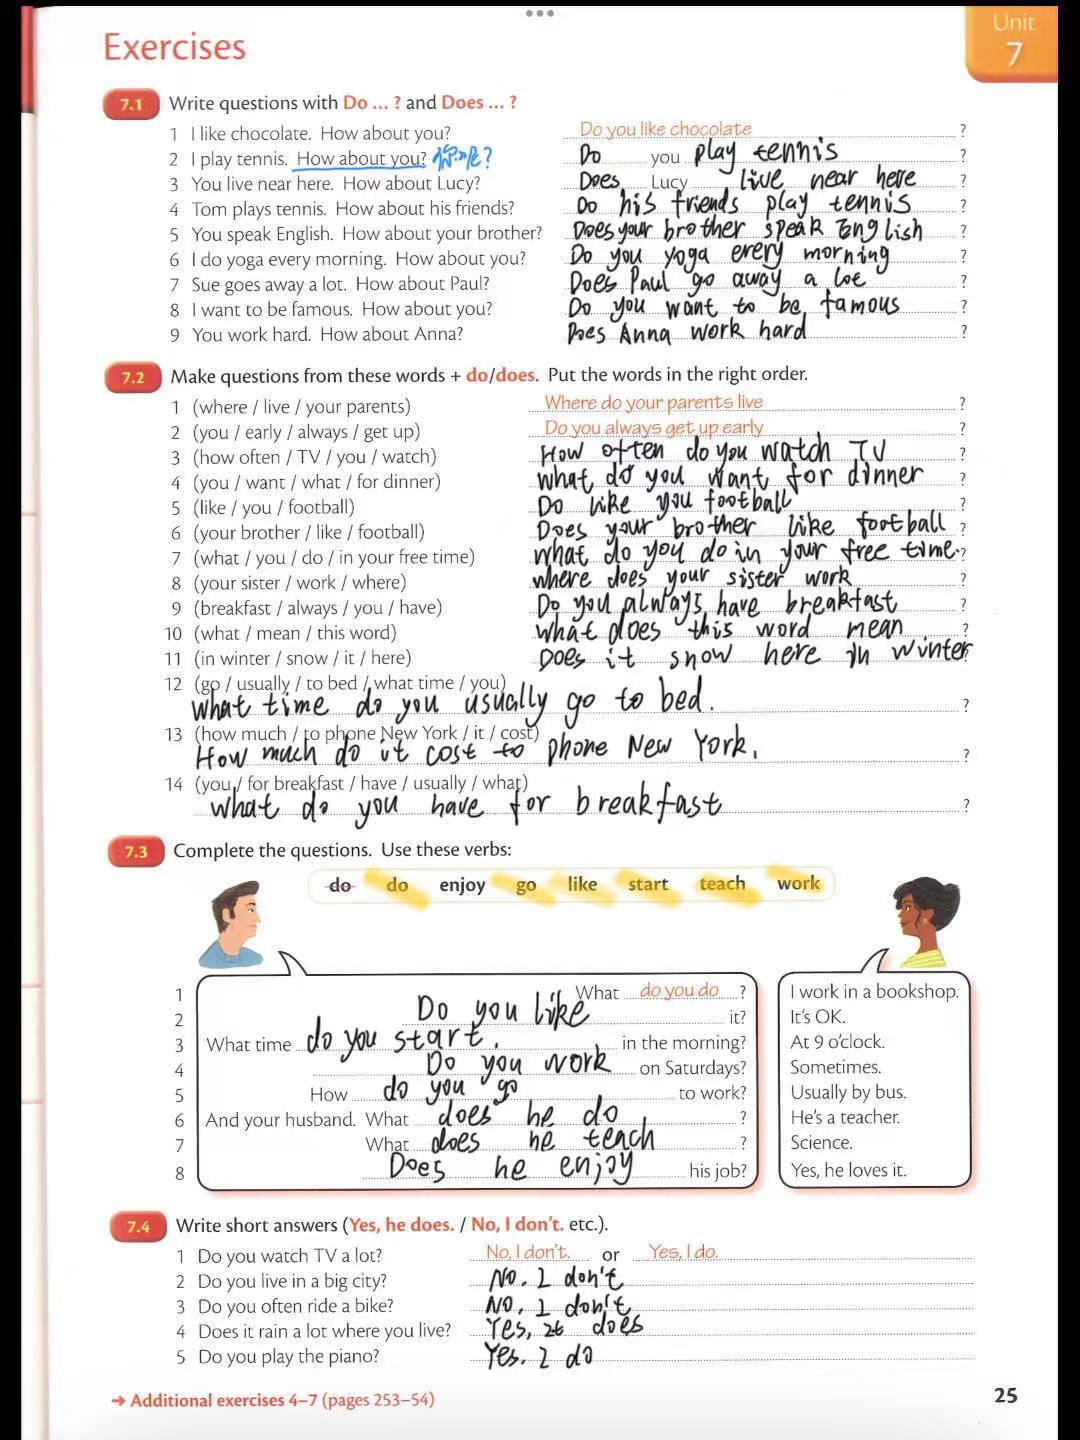 Unit
7
Exercises
7.1 Write questions with Do ... ? and Does ... ?
1 I like chocolate. How about you? Do you like chocolate ?
2 I play tennis. How about you? 你呢? Do you play tennis ?
3 You live near here. How about Lucy? Does Lucy live near here ?
4 Tom plays tennis. How about his friends? Do his friends play tennis ?
5 You speak English. How about your brother? Does your brother speak English ?
6 I do yoga every morning. How about you? Do you yoga every morning ?
7 Sue goes away a lot. How about Paul? Does Paul go away a lot ?
8 I want to be famous. How about you? Do you want to be famous ?
9 You work hard. How about Anna? Does Anna work hard ?
7.2 Make questions from these words + do/does. Put the words in the right order.
1 (where / live / your parents) Where do your parents live ?
2 (you / early / always / get up) Do you always get up early ?
3 (how often / TV / you / watch) How often do you watch TV ?
4 (you / want / what / for dinner) what do you want for dinner ?
5 (like / you / football) Do like you football ?
6 (your brother / like / football) Does your brother like football ?
7 (what / you / do / in your free time) what do you do in your free time. ?
8 (your sister / work / where) where does your sister work ?
9 (breakfast / always / you / have) Do you always have breakfast ?
10 (what / mean / this word) what does this word mean ?
11 (in winter / snow / it / here) Does it snow here in winter
12 (go / usually / to bed / what time / you)
what time do you usually go to bed. ?
13 (how much / to phone New York / it / cost)
How much do it cost to phone New York. ?
14 (you / for breakfast / have / usually / what)
what do you have for breakfast ?
7.3 Complete the questions. Use these verbs:
do do enjoy go like start teach work
1 What do you do ? I work in a bookshop.
2 Do you like it? It's OK.
3 What time do you start. in the morning? At 9 o'clock.
4 Do you work on Saturdays? Sometimes.
5 How do you go to work? Usually by bus.
6 And your husband. What does he do ? He's a teacher.
7 What does he teach ? Science.
8 Does he enjoy his job? Yes, he loves it.
7.4 Write short answers (Yes, he does. / No, I don't. etc.).
1 Do you watch TV a lot? No, I don't. or Yes, I do.
2 Do you live in a big city? No. I don't
3 Do you often ride a bike? No, I don't
4 Does it rain a lot where you live? Yes, it does
5 Do you play the piano? Yes. I do
→ Additional exercises 4–7 (pages 253–54)
25